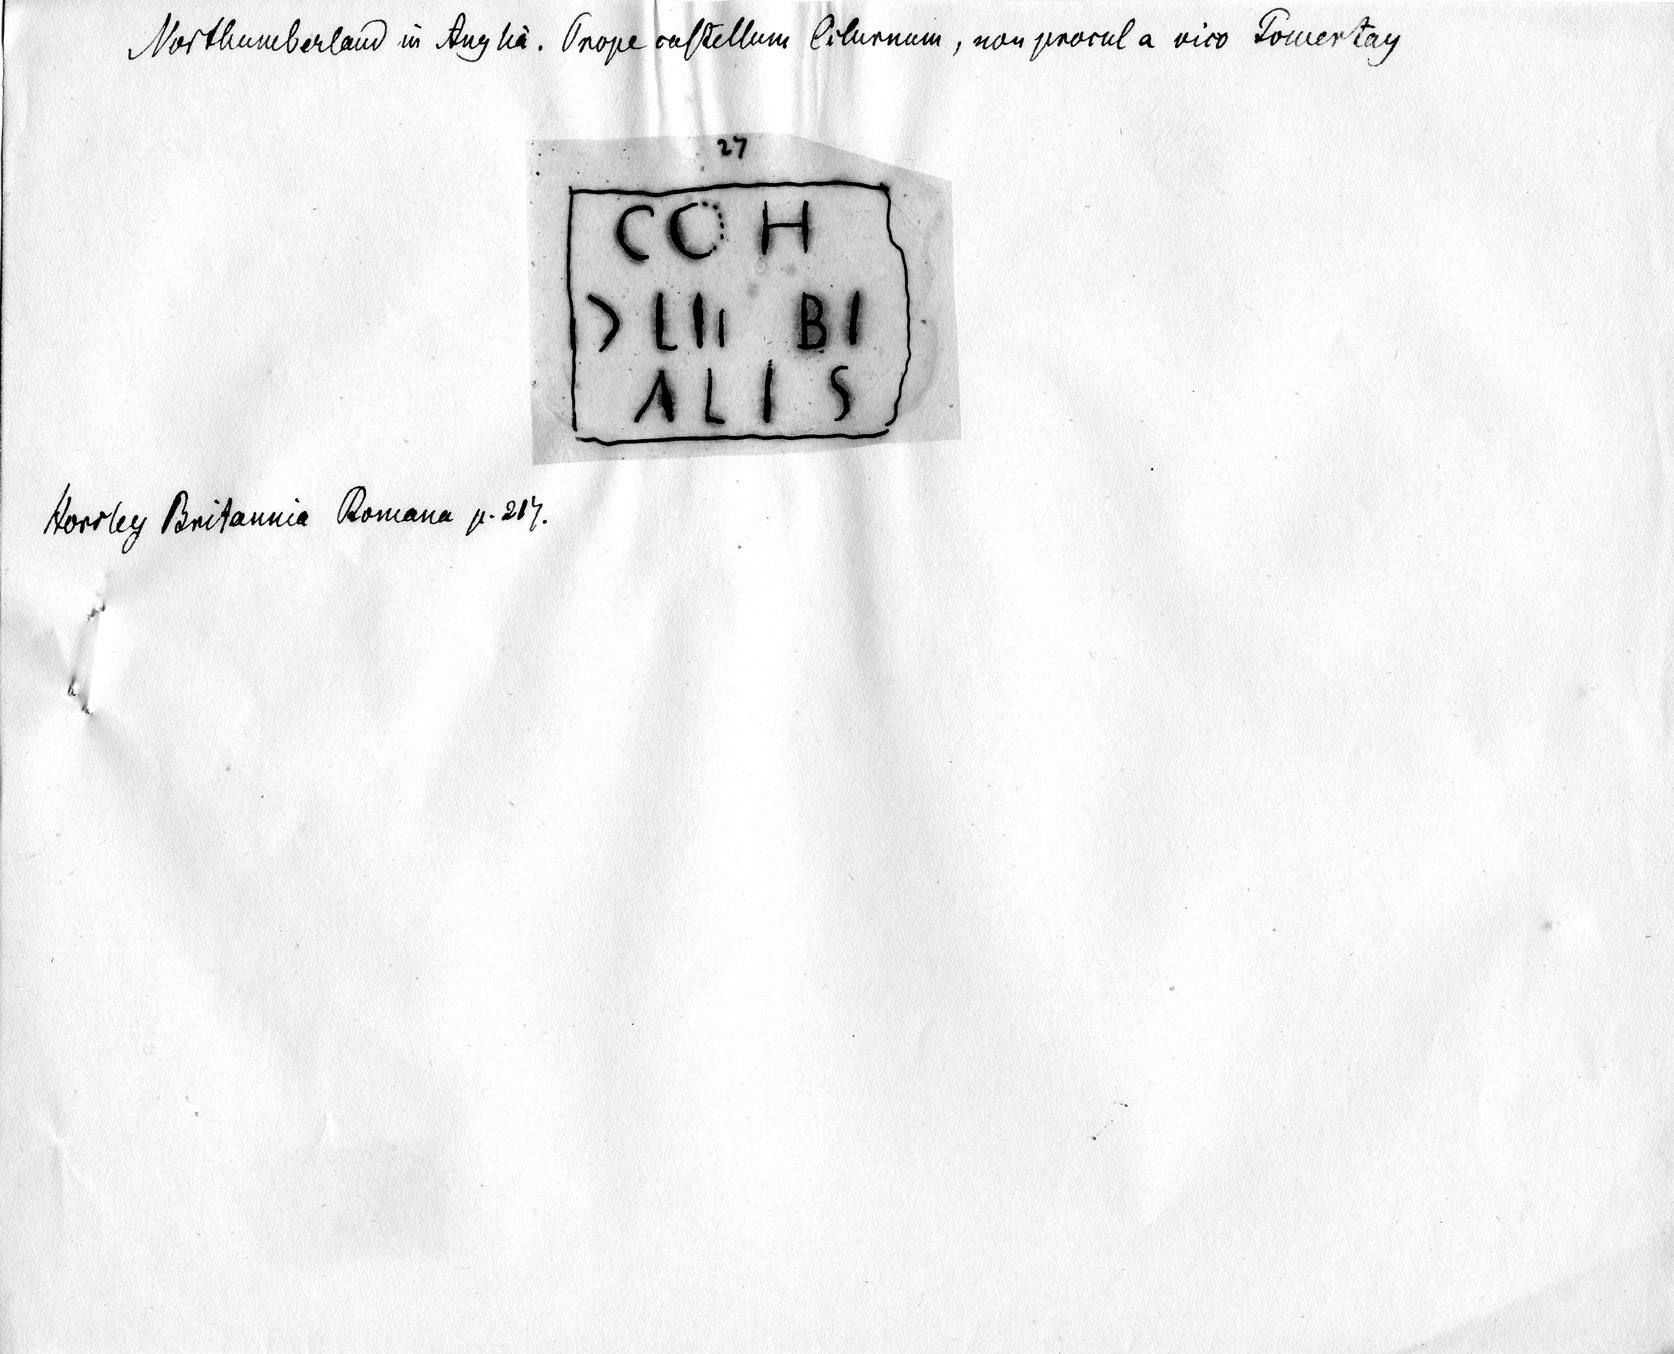 Northumberland in Anglia. Prope castellum Cilurnum, non procul a vico Towertay
27
COH
> LIII BI
ALIS
Horsley Britannia Romana p. 217.